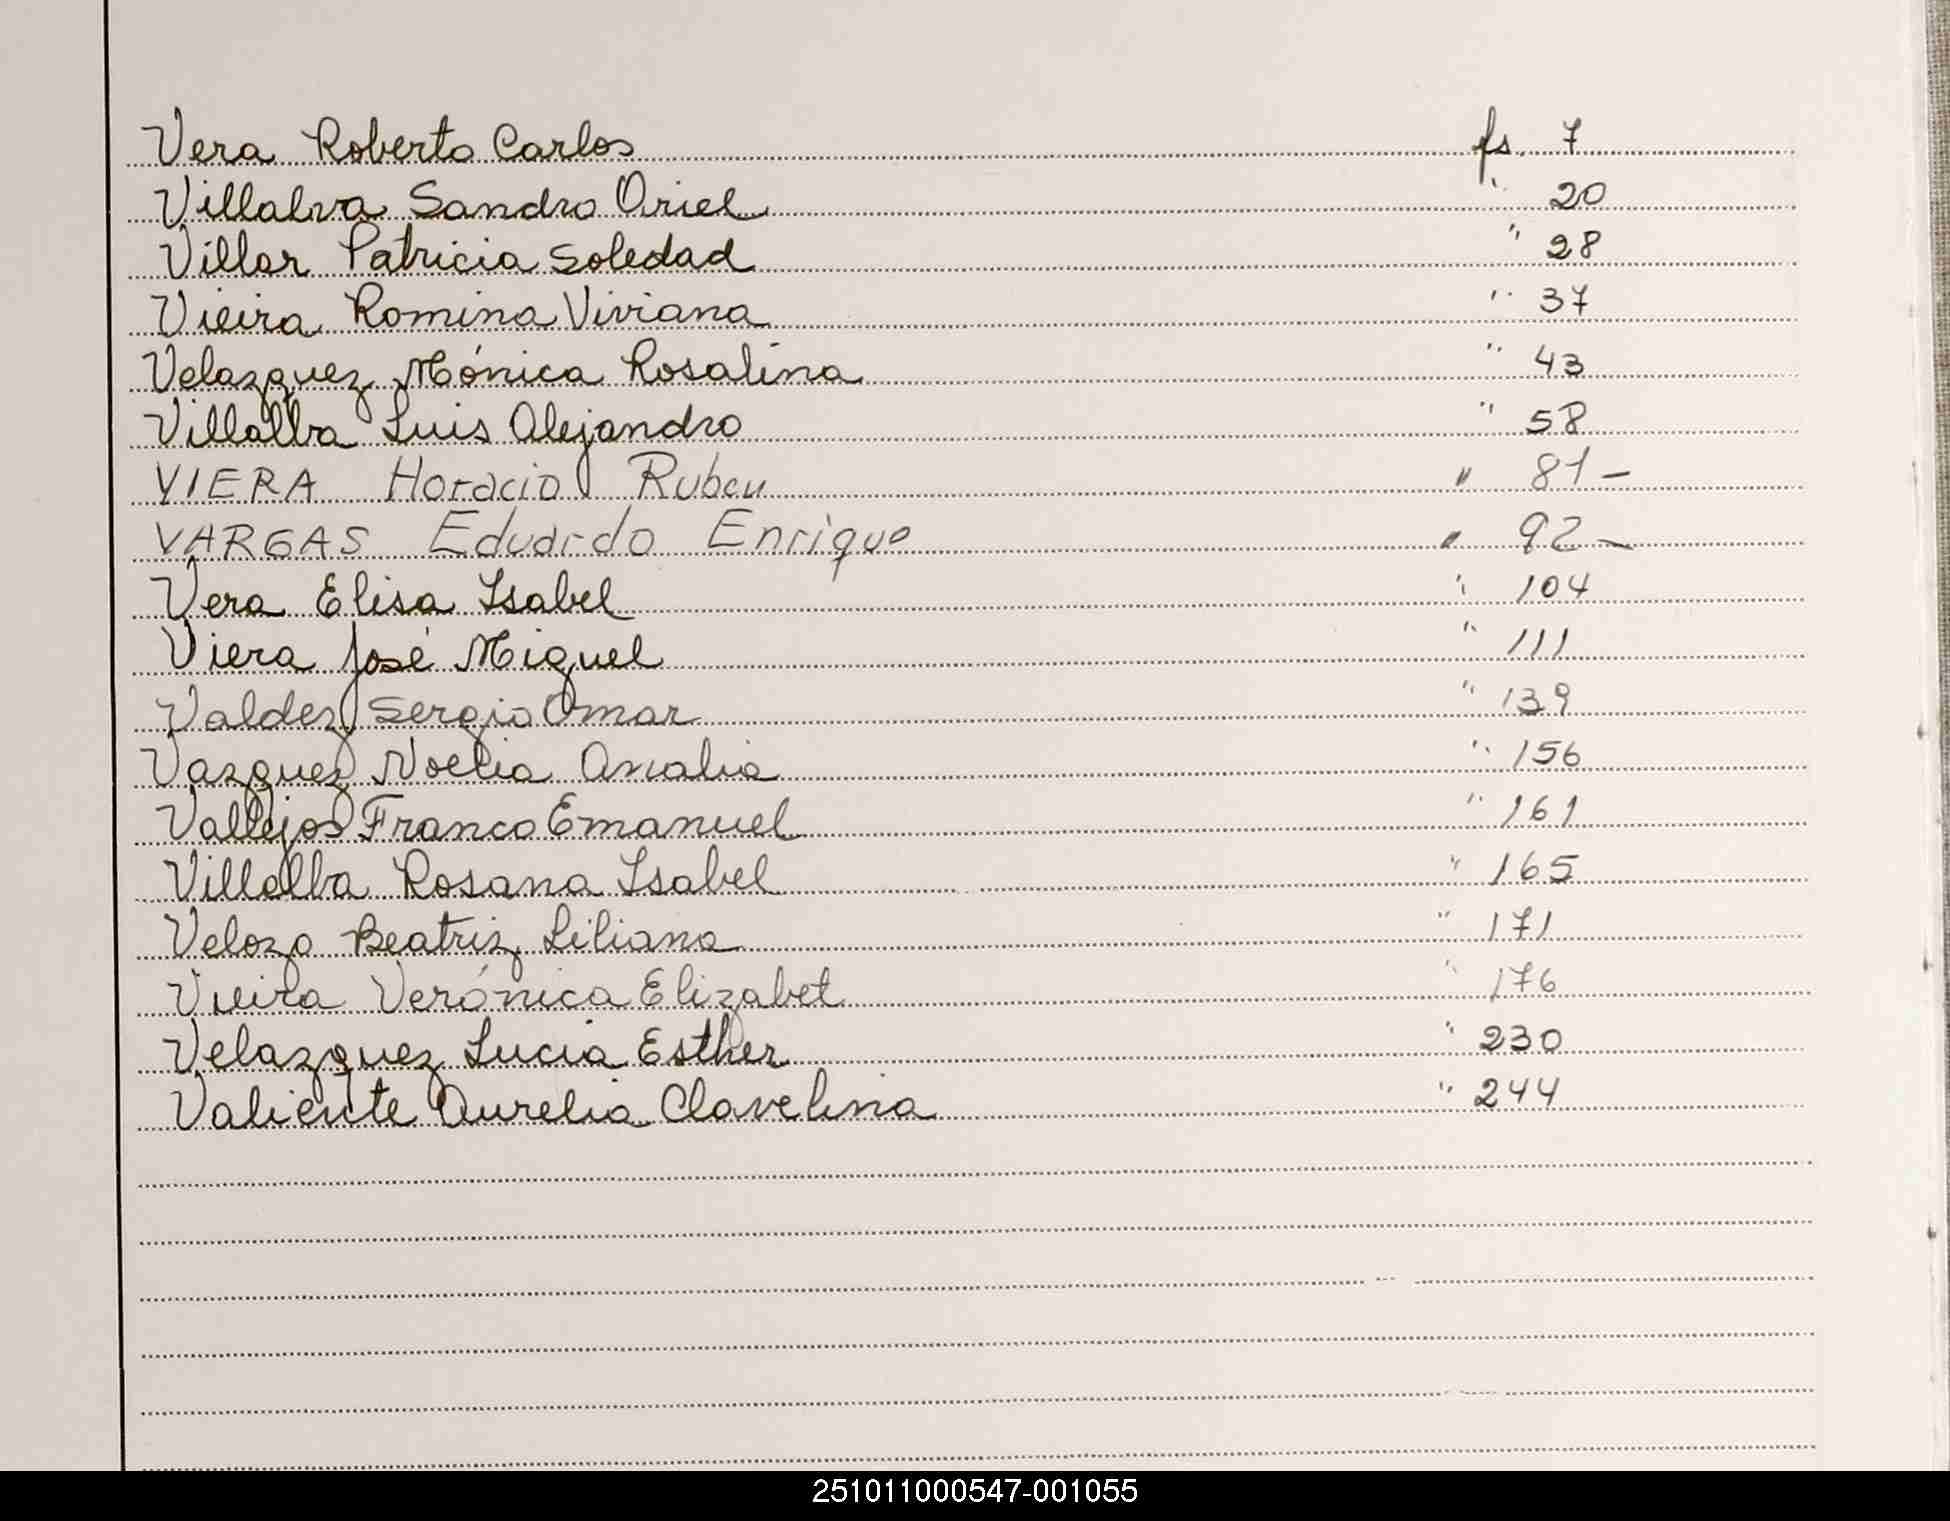 Vera Roberto Carlos fs. 7
Villalva Sandro Oriel " 20
Villar Patricia Soledad " 28
Vieira Romina Viviana " 37
Velazquez Mónica Rosalina " 43
Villalba Luis Alejandro " 58
VIERA Horacio Ruben " 81 -
VARGAS Eduardo Enrique " 92 -
Vera Elisa Isabel " 104
Viera José Miguel " 111
Valdez Sergio Omar " 139
Vazquez Noelia Analia " 156
Vallejos Franco Emanuel " 161
Villalba Rosana Isabel " 165
Velozo Beatriz Liliana " 171
Vieira Verónica Elizabet " 176
Velazquez Lucia Esther " 230
Valiente Aurelia Clavelina " 244
251011000547-001055